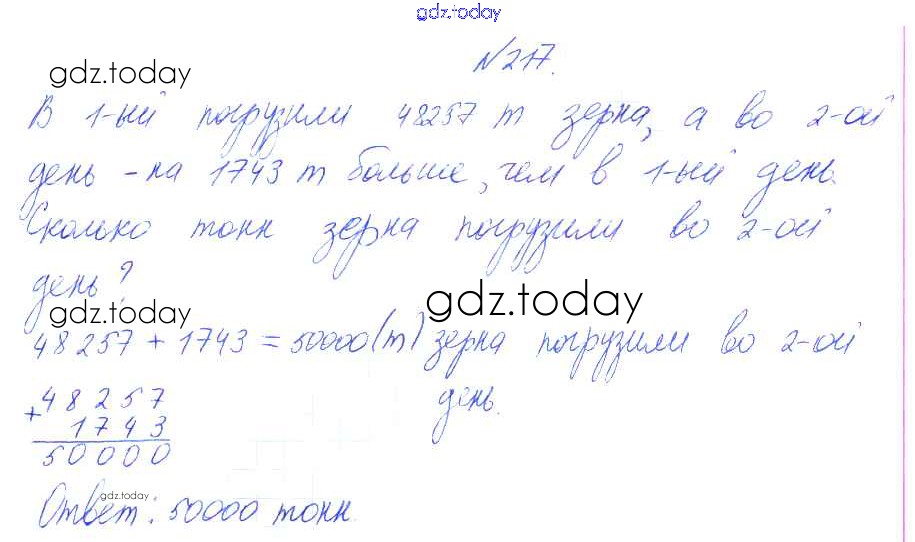 gdz.today
№217.
gdz.today
В 1-ый погрузили 48257 т зерна, а во 2-ой
день - на 1743 т больше, чем в 1-ый день.
Сколько тонн зерна погрузили во 2-ой
день?
gdz.today
gdz.today
48257 + 1743 = 50000 (т) зерна погрузили во 2-ой
день.
+48257
1743
50000
gdz.today
Ответ: 50000 тонн.